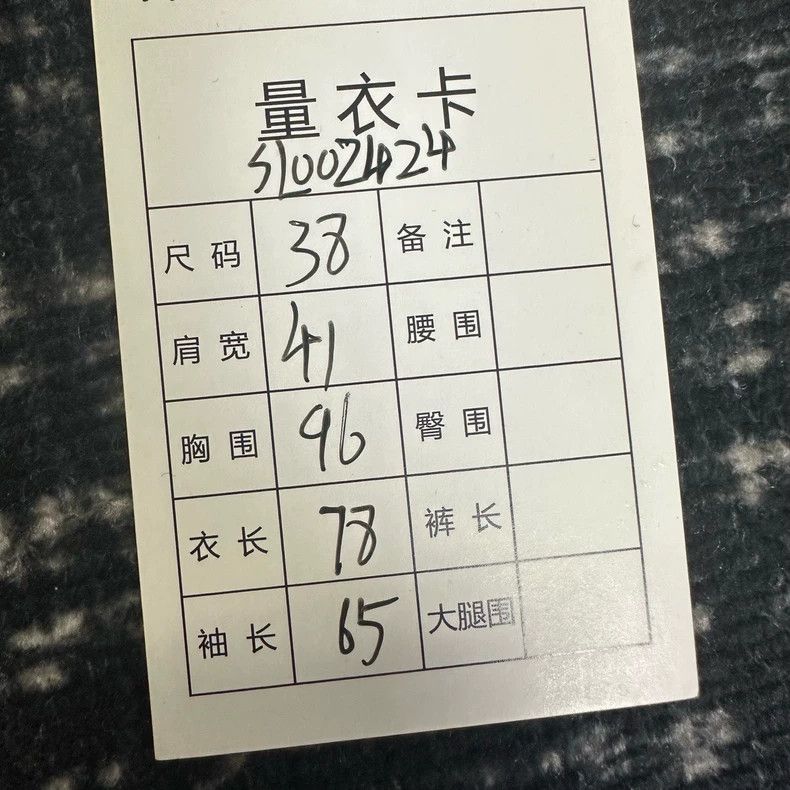 量衣卡
SL002424
尺码 38 备注
肩宽 41 腰围
胸围 96 臀围
衣长 78 裤长
袖长 65 大腿围